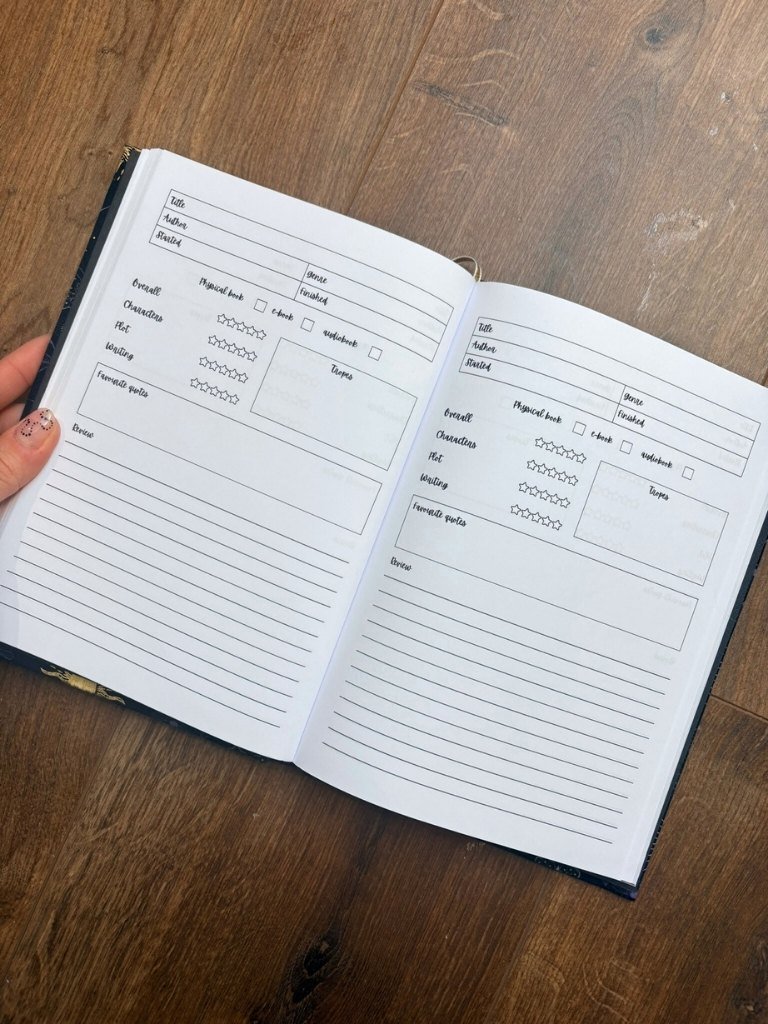 Title
Author
Started
Genre
Finished
Physical book e-book audiobook
Overall
Characters
Plot
Writing
Tropes
Favourite quotes
Review
Title
Author
Started
Genre
Finished
Physical book e-book audiobook
Overall
Characters
Plot
Writing
Tropes
Favourite quotes
Review